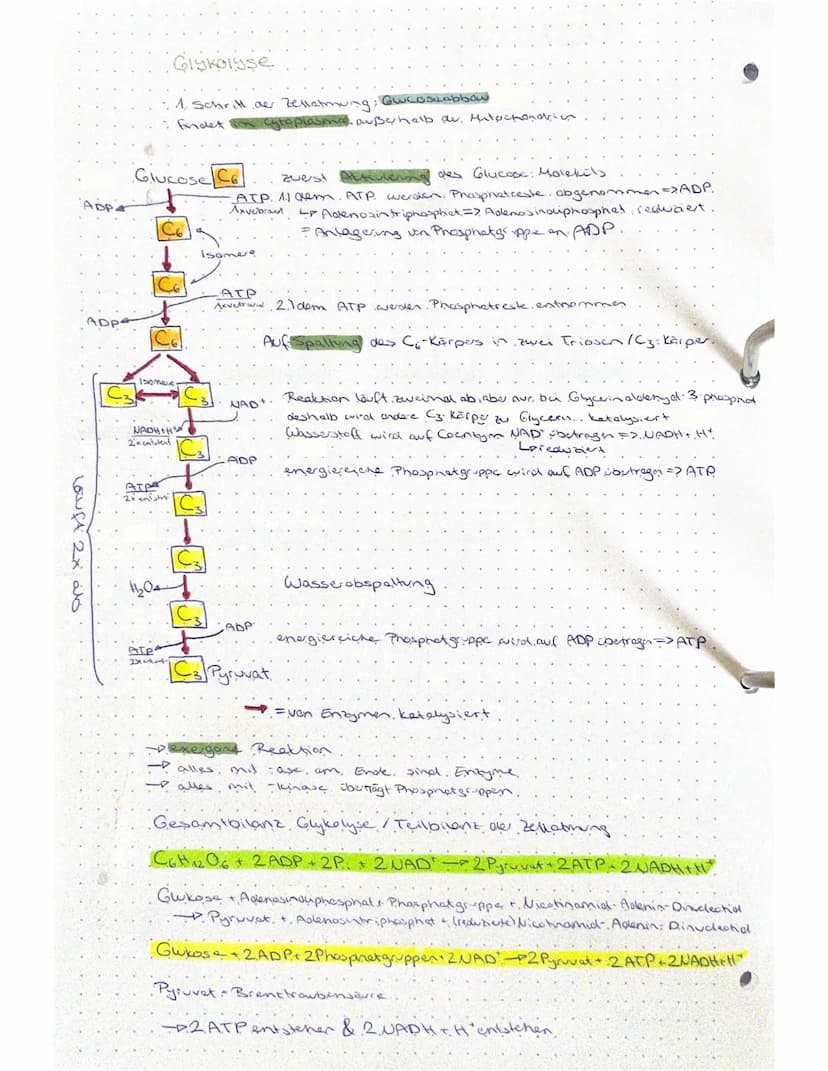 Glykolyse
1. Schritt der Zellatmung: Glucoseabbau
findet im Cytoplasma außerhalb der Mitochondrien
Glucose C6 zuerst Aktivierung des Glucose-Moleküls
ADP ATP 1.) dem ATP werden Phosphatreste abgenommen => ADP
1x verbraucht ↳ Adenosintriphosphat => Adenosindiphosphat reduziert
C6 = Anlagerung von Phosphatgruppe an ADP
Isomere
C6
ATP
1x verbraucht 2.) dem ATP werden Phosphatreste entnommen
ADP
C6 Aufspaltung des C6-Körpers in zwei Triosen / C3-Körper
Isomere
C3 C3 NAD+ Reaktion läuft zweimal ab, aber nur bei Glycerinaldehyd-3-phosphat
deshalb wird andere C3-Körper zu Glycerin... katalysiert
NADH+H+ Wasserstoff wird auf Coenzym NAD+ übertragen => NADH + H+
2x entsteht C3 ↳ reduziert
ADP
energiereiche Phosphatgruppe wird auf ADP übertragen => ATP
ATP
2x entsteht C3
läuft 2x ab
C3
H2O Wasserabspaltung
C3
ADP
energiereiche Phosphatgruppe wird auf ADP übertragen => ATP
ATP
C3 Pyruvat
→ = von Enzymen katalysiert
→ exergone Reaktion
→ alles mit -ase am Ende sind Enzyme
→ alles mit -kinase überträgt Phosphatgruppen
Gesamtbilanz Glykolyse / Teilbilanz der Zellatmung
C6H12O6 + 2ADP + 2P.. + 2NAD+ → 2Pyruvat + 2ATP + 2NADH+H+
Glukose + Adenosindiphosphat + Phosphatgruppe + Nicotinamid-Adenin-Dinucleotid
→ Pyruvat + Adenosintriphosphat + (reduzierte) Nicotinamid-Adenin-Dinucleotid
Glukose + 2ADP + 2Phosphatgruppen + 2NAD+ → 2Pyruvat + 2ATP + 2NADH+H+
Pyruvat = Brenztraubensäure
→ 2 ATP entstehen & 2 NADH + H+ entstehen